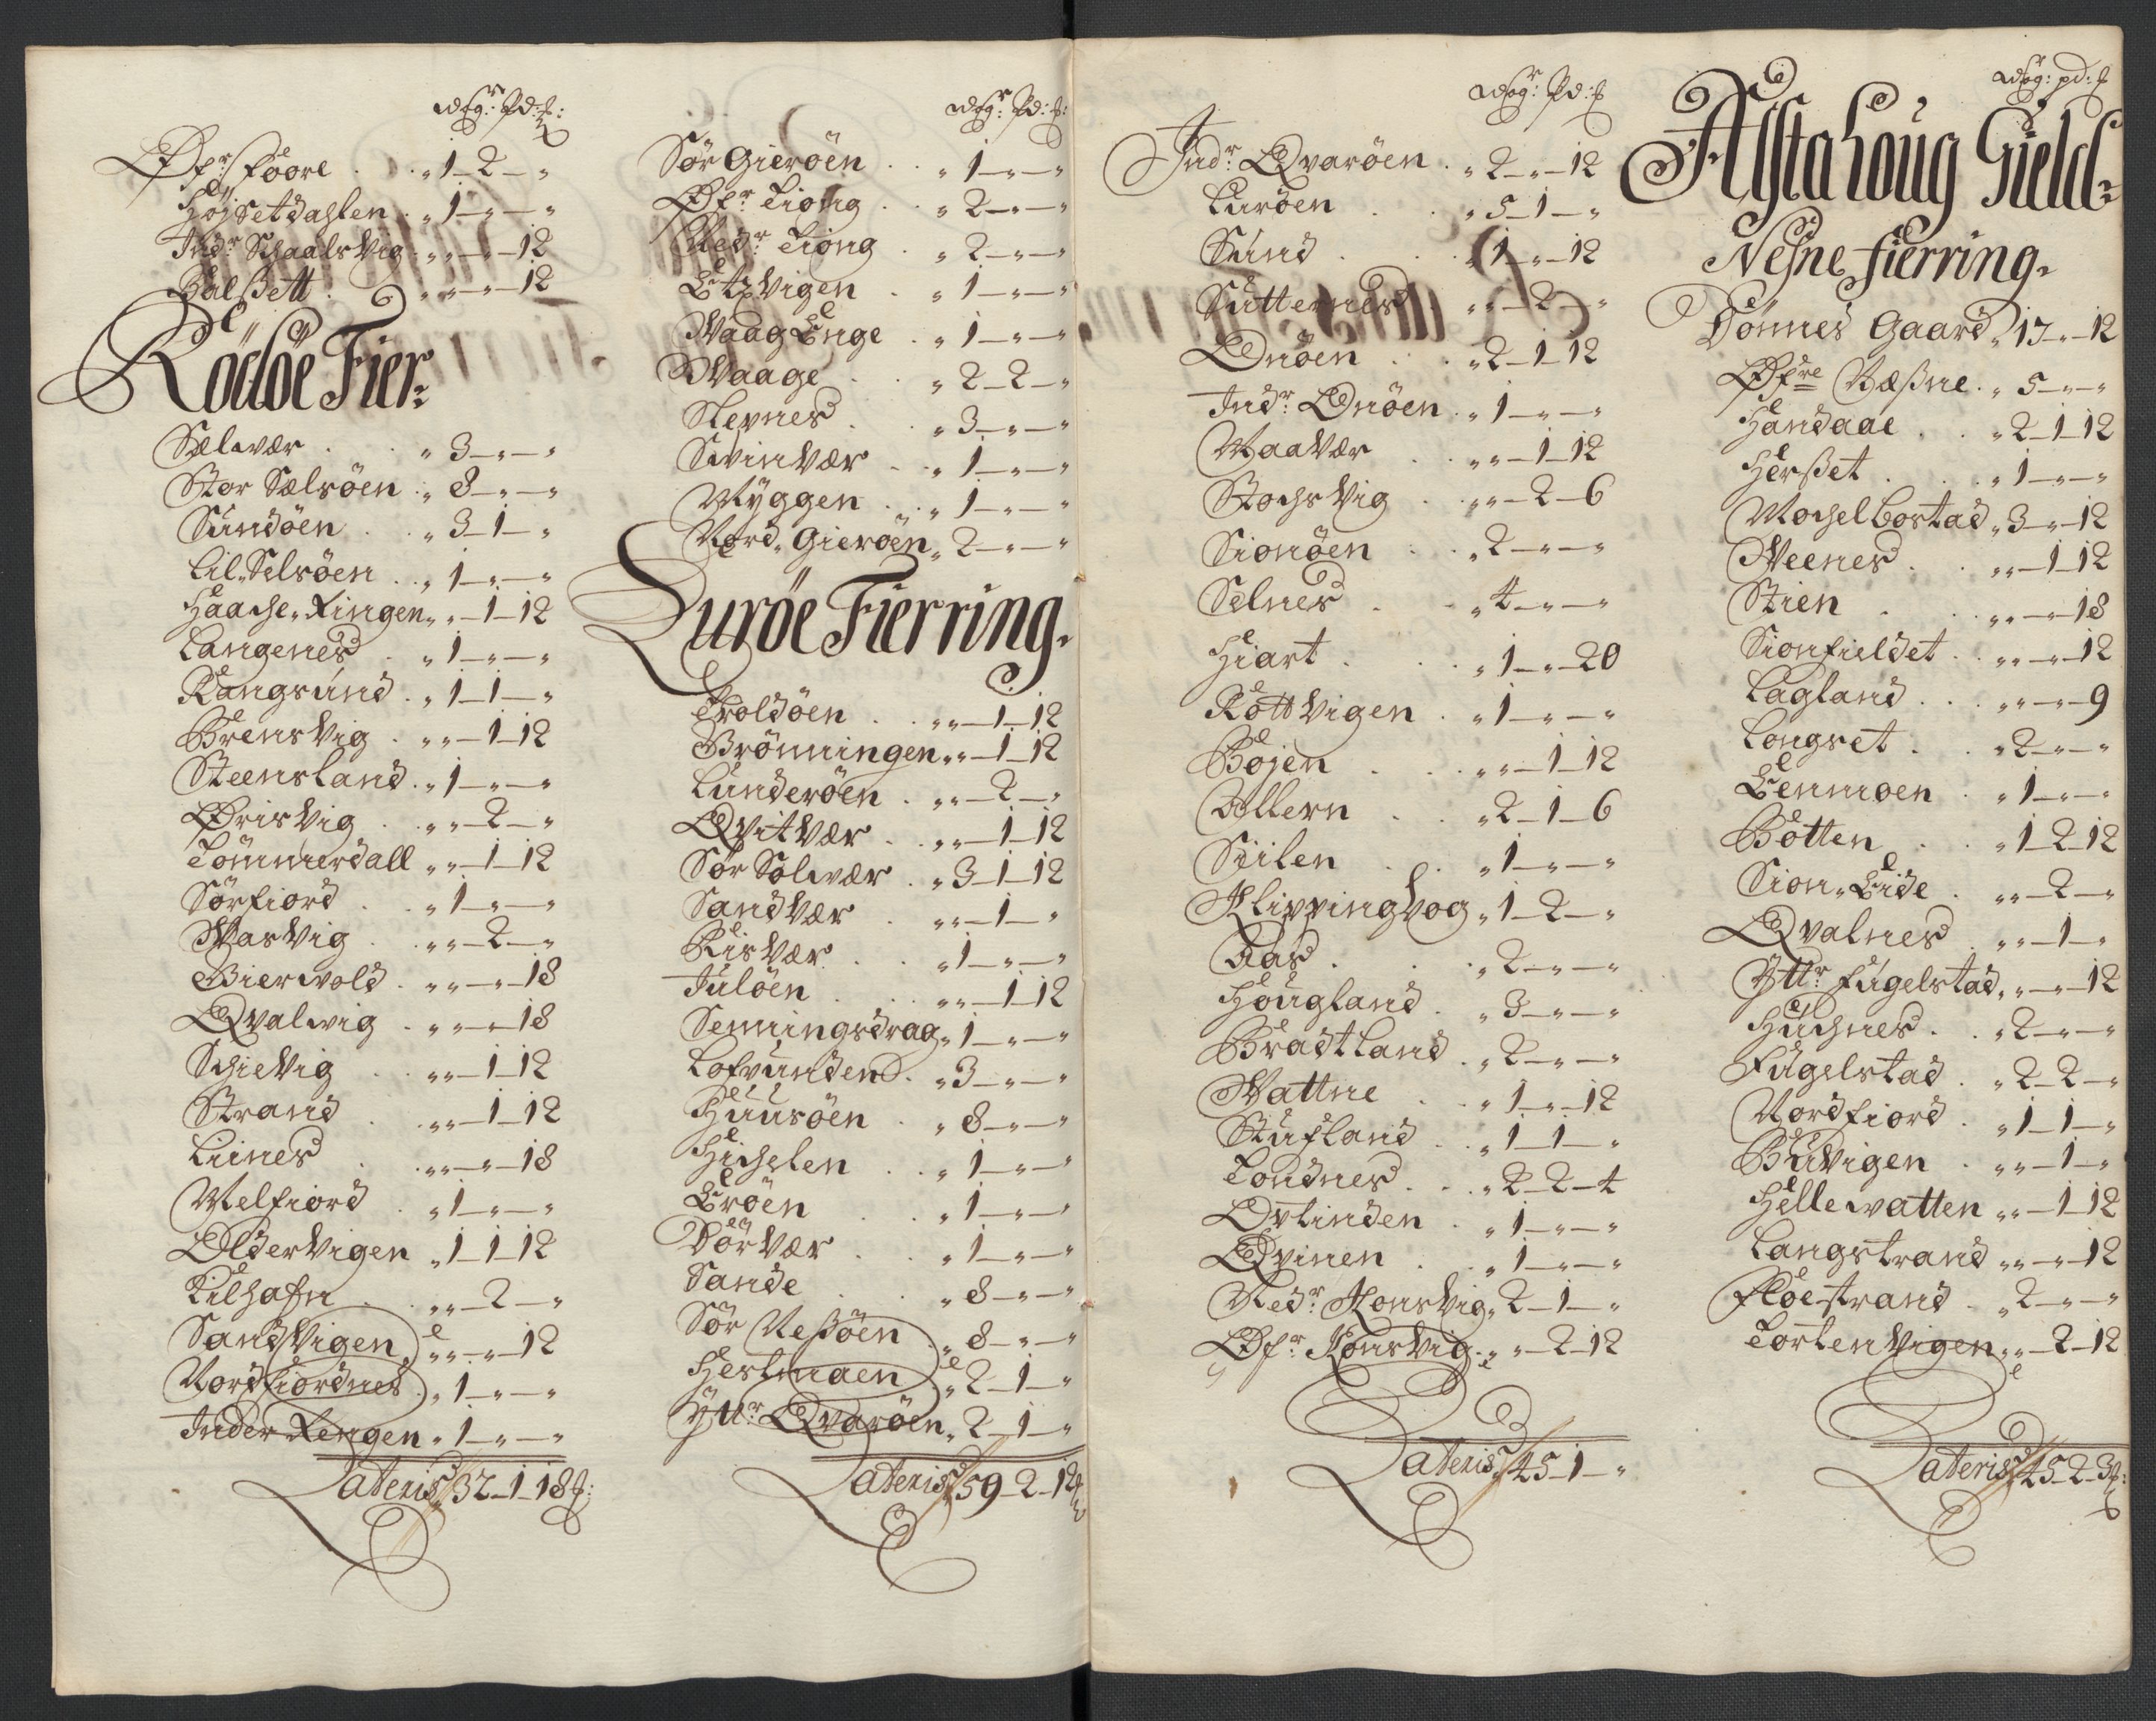 wog: Pd: ℔:
Øfr: Föore . . „ 1 – 2 – „
Höjsetdahlen . „ 1 – „ – „
Indr Schaalsvig . „ „ – „ – 12
Halßett . „ „ – „ – 12
Rödöe Fier:
Sælvær . . „ 3 – „ – „
Stor Sælsöen . „ 8 – „ – „
Sundöen . . „ 3 – 1 – „
Lil Selsöen . . „ 1 – „ – „
Haache Ringen „ „ – 1 – 12
Langenes . „ 1 – „ – „
Rangsund . „ 1 – 1 – „
Brensvig . „ „ – 1 – 12
Steensland . „ 1 – „ – „
Ørisvig . „ „ – 2 – „
Tömmerdall „ „ – 1 – 12
Sörfiord . . „ 1 – „ – „
Wasvig . „ „ – 2 – „
Bierwold . „ „ – „ – 18
Qvalwig . „ „ – „ – 18
Schievig . „ „ – 1 – 12
Strand . „ „ – 1 – 12
Liines . „ „ – „ – 18
Melfiord . „ 1 – „ – „
Oldervigen „ 1 – 1 – 12
Kilhafn . „ „ – 2 – „
Sandvigen „ „ – „ – 12
Nordfiordnes . „ 1 – „ – „
Inder Rengen „ 1 – „ – „
Lateris 32 – 1 – 18 ℔:
wog: Pd: ℔:
Sör Gieröen . . „ 1 – „ – „
Øfr Tiong . . „ 2 – „ – „
Nedr Tiong . „ 2 – „ – „
Etzvigen . „ 1 – „ – „
Waag Enge . „ 1 – „ – „
Waage . . „ 2 – 2 – „
Slepnes . „ 3 – „ – „
Svinvær . . „ 1 – „ – „
Myggen . . „ 1 – „ – „
Nord Gieröen „ 2 – „ – „
Luröe Fierring.
Troldöen . . „ „ – 1 – 12
Brönningen „ „ – 1 – 12
Lunderöen . „ „ – 2 – „
Qvitvær . „ „ – 1 – 12
Sör Solvær . „ 3 – 1 – 12
Sandvær . „ „ – 1 – „
Risvær . . „ 1 – „ – „
Julöen . . „ „ – 1 – 12
Senningsdrag „ 1 – „ – „
Lofvunden . „ 3 – „ – „
Huusöen . „ 8 – „ – „
Hichelen . . „ 1 – „ – „
Eröen . . „ 1 – „ – „
Dörvær . „ 1 – „ – „
Sande . „ 8 – „ – „
Sör Neßöen . „ 8 – „ – „
Hestmaen „ 2 – 1 – „
Yttr Qvaröen „ 2 – 1 – „
Lateris 59 – 2 – 12 ℔
wog: Pd: ℔
Indr Qvaröen . „ 2 – „ – 12
Luröen . . „ 5 – 1 – „
Sund . . „ 1 – „ – 12
Sutternes . „ „ – 2 – „
Onöen . . „ 2 – 1 – 12
Indr Onöen . „ 1 – „ – „
Waavær . „ „ – 1 – 12
Stochsvig . „ „ – 2 – 6
Sionöen . . „ 2 – „ – „
Selnes . . „ 4 – „ – „
Hiart . . „ 1 – „ – 20
Rottvigen . „ 1 – „ – „
Bojen . . „ „ – 1 – 12
Allern . . „ 2 – 1 – 6
Siilen . . „ 1 – „ – „
Klippingvog „ 1 – 2 – „
Aas . . „ 2 – „ – „
Hougland . „ 3 – „ – „
Bradtland . „ 2 – „ – „
Wattne . „ 1 – „ – 12
Stufland . „ 1 – 1 – „
Tondnes . . „ 2 – 2 – 4
Ovtinden . „ 1 – „ – „
Qvinen . „ 1 – „ – „
Nedr Konsvig „ 2 – 1 – „
Øfr Konsvig „ „ – 2 – 12
Lateris 45 – 1 – „
wog: pd: ℔
Alstahoug Gield:
Nesne Fierring.
Dönnes Gaard „ 17 – „ – 12
Øfre Næßne . „ 5 – „ – „
Handaae . . „ 2 – 1 – 12
Herßet . . „ 1 – „ – „
Mochelbostad „ 3 – „ – 12
Weenes . „ „ – 1 – 12
Stien . „ „ – „ – 18
Sionfieldet . „ „ – „ – 12
Lagland . . „ „ – „ – 9
Longset . „ 2 – „ – „
Lenmoen . „ 1 – „ – „
Botten . . „ 1 – 2 – 12
Sion Eide . „ „ – 2 – „
Qvalnes . „ „ – 1 – „
Yttr Fugelstad „ „ – „ – 12
Huchnes . . „ 2 – „ – „
Fugelstad . „ 2 – 2 – „
Nordfiord . „ 1 – 1 – „
Buvigen . „ „ – 1 – „
Hellewatten „ „ – 1 – 12
Langstrand „ „ – „ – 12
Floestrand . „ 2 – „ – „
Tortenvigen „ „ – 2 – 12
Lateris 45 – 2 – 3 ℔: